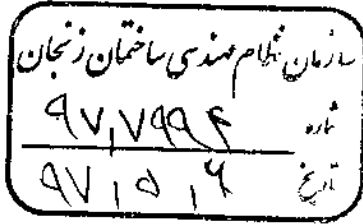 سازمان نظام مهندسی ساختمان زنجان
شماره ۹۷٫۷۹۹۴
تاریخ ۹۷٫۵٫۶